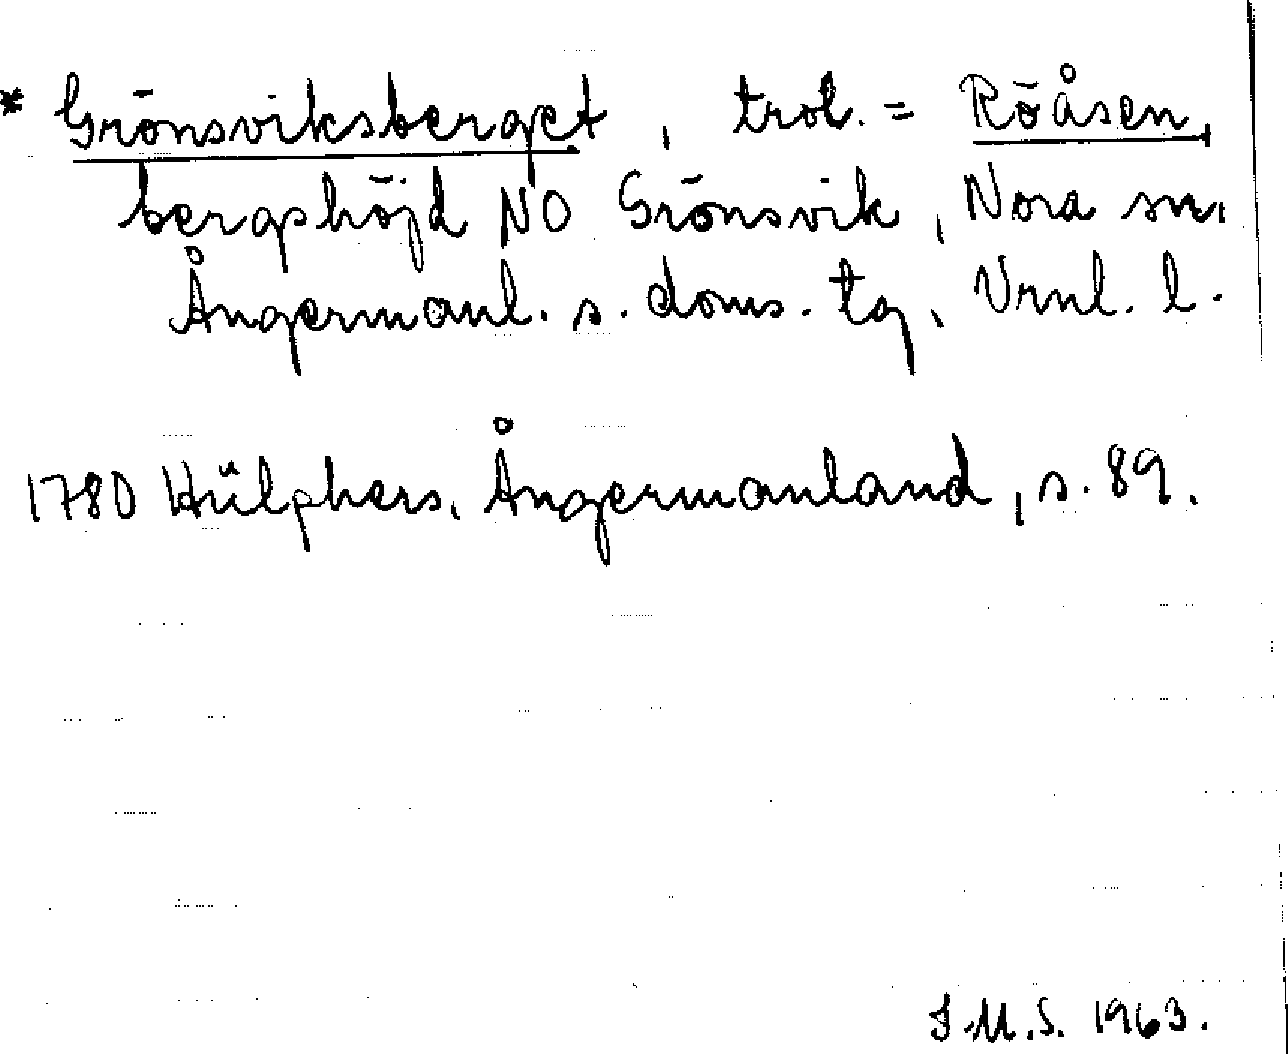 * Grönsviksberget, trol. = Röåsen,
bergshöjd NO Grönsvik, Nora sn.
Ångermanl. s. doms. tg, Vrnl. l.
1780 Hülphers, Ångermanland, s. 89.
I M.S. 1963.